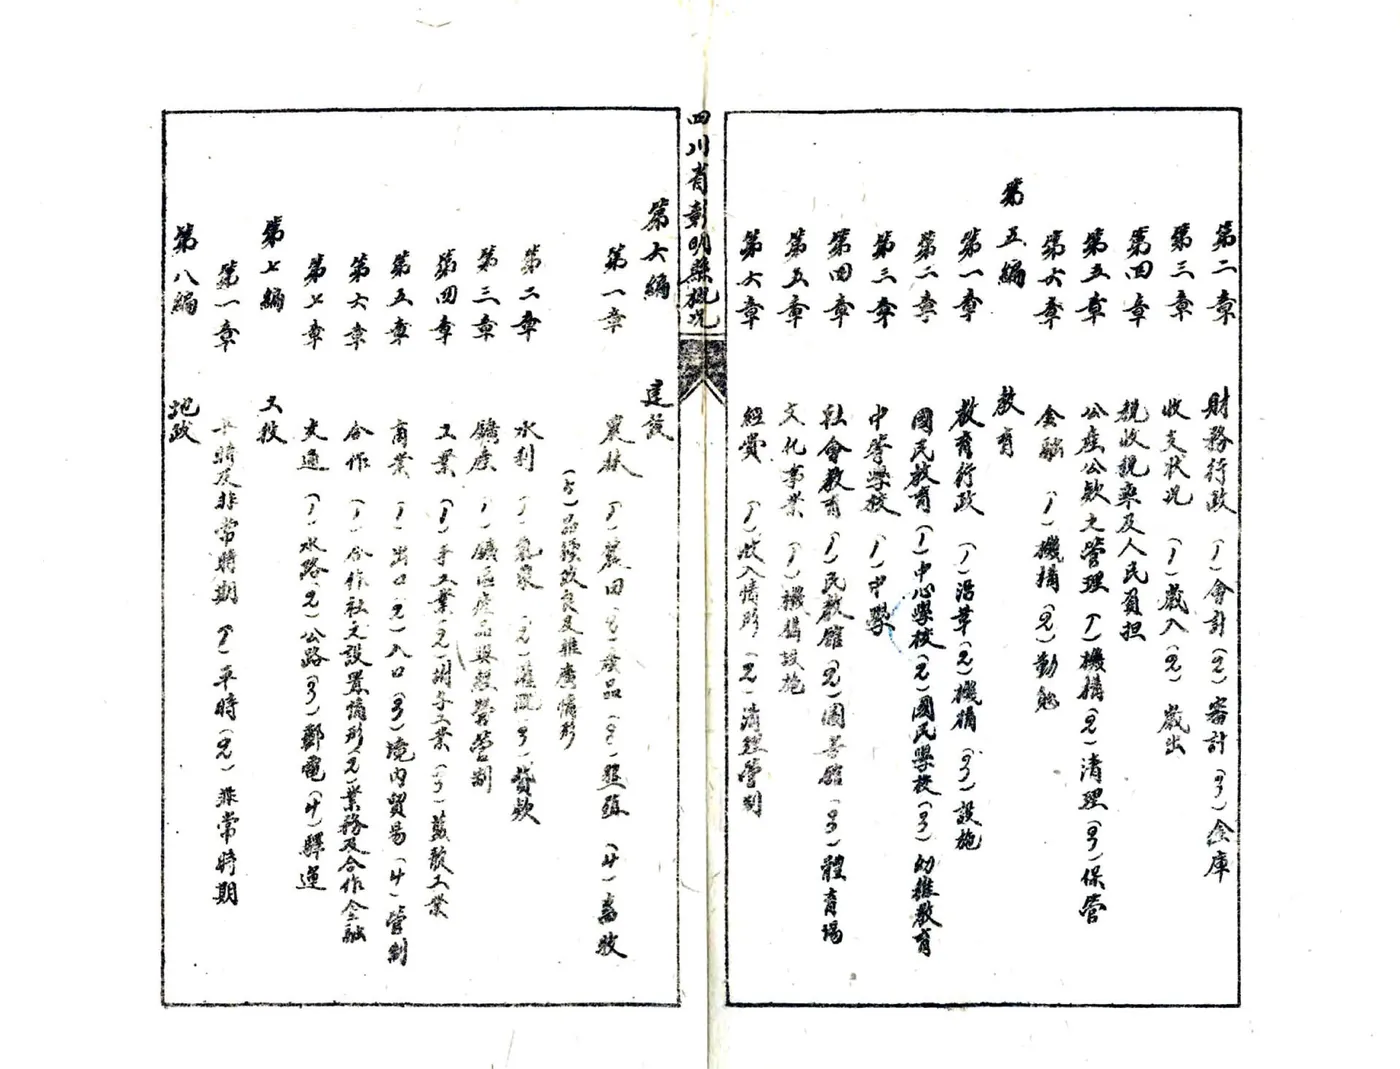 第二章 財務行政 (1)會計(2)審計(3)金庫
第三章 收支狀况 (1)歲入(2)歲出
第四章 稅收稅率及人民負担
第五章 公產公欵之管理 (1)機構(2)清理(3)保管
第六章 金融 (1)機構(2)勤勉
第五編 教育
第一章 教育行政 (1)沿革(2)機構(3)設施
第二章 國民教育 (1)中心學校(2)國民學校(3)幼稚教育
第三章 中等學校 (1)中學
第四章 社會教育 (1)民教館(2)圖書館(3)體育場
第五章 文化事業 (1)機構設施
第六章 經費 (1)收入情形(2)清理管制
四川省彰明縣概况
第六編 建設
第一章 農林 (1)農田(2)產品(3)墾殖(4)畜牧
(5)品種改良及推廣情形
第二章 水利 (1)(2)灌溉(3)貸欵
第三章 鑛產 (1)鑛區產品與經營管制
第四章 工業 (1)手工業(2)工業(3)工業
第五章 商業 (1)出口(2)入口(3)境內貿易(4)管制
第六章 合作 (1)合作社之設置情形(2)業務及合作金融
第七章 交通 (1)水路(2)公路(3)郵電(4)驛運
第七編 工役
第一章 平時及非常時期 (1)平時(2)非常時期
第八編 地政